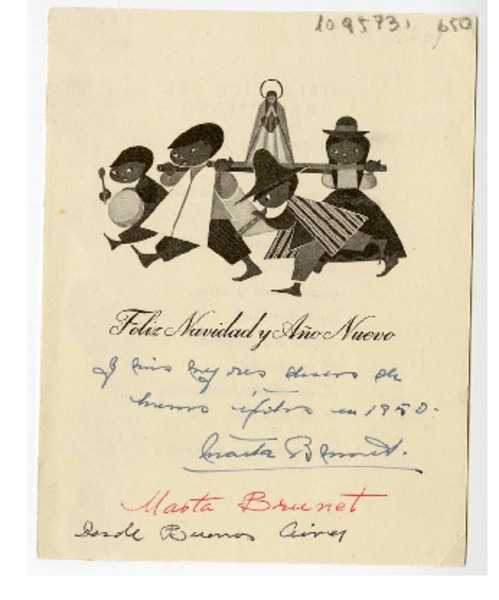 1095731 650
Feliz Navidad y Año Nuevo
y mis mejores deseos de
buenos éxitos en 1950.
Marta Brunet.
Marta Brunet
Desde Buenos Aires